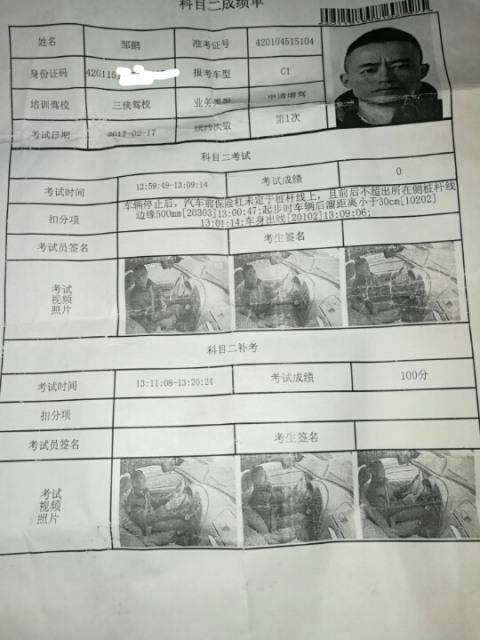 科目二成绩单
姓名 邹鹏 准考证号 420104515104
身份证码 420115 报考车型 C1
培训驾校 三侠驾校 业务类型 申请增驾
考试日期 2017-02-17 预约次数 第1次
科目二考试
考试时间 12:59:49-13:09:14 考试成绩 0
扣分项 车辆停止后，汽车前保险杠未定于桩杆线上，且前后不超出所在侧桩杆线
边缘500mm[20303]13:00:47;起步时车辆后溜距离小于30cm[10202]
13:01:14;车身出线[20102]13:09:06;
考试员签名 考生签名
考试
视频
照片
科目二补考
考试时间 13:11:08-13:20:24 考试成绩 100分
扣分项
考试员签名 考生签名
考试
视频
照片